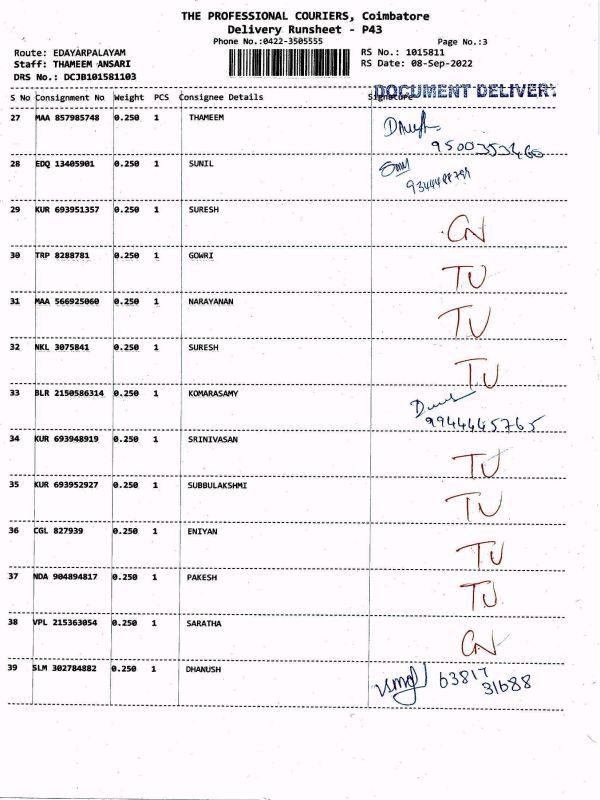 THE PROFESSIONAL COURIERS, Coimbatore
Delivery Runsheet - P43
Phone No.:0422-3505555 Page No.:3
Route: EDAYARPALAYAM RS No.: 1015811
Staff: THAMEEM ANSARI RS Date: 08-Sep-2022
DRS No.: DCJB101581103
DOCUMENT DELIVERY
S No Consignment No Weight PCS Consignee Details Signature
27 MAA 857985748 0.250 1 THAMEEM
9500353460
28 EDQ 13405901 0.250 1 SUNIL
29 KUR 693951357 0.250 1 SURESH CN
30 TRP 8288781 0.250 1 GOWRI TU
31 MAA 566925060 0.250 1 NARAYANAN TU
32 NKL 3075841 0.250 1 SURESH TU
33 BLR 2150586314 0.250 1 KOMARASAMY
9944445765
34 KUR 693948919 0.250 1 SRINIVASAN TU
35 KUR 693952927 0.250 1 SUBBULAKSHMI TU
36 CGL 827939 0.250 1 ENIYAN TU
37 NDA 904894817 0.250 1 PAKESH TU
38 VPL 215363054 0.250 1 SARATHA CN
39 SLM 302784882 0.250 1 DHANUSH 63817
31688